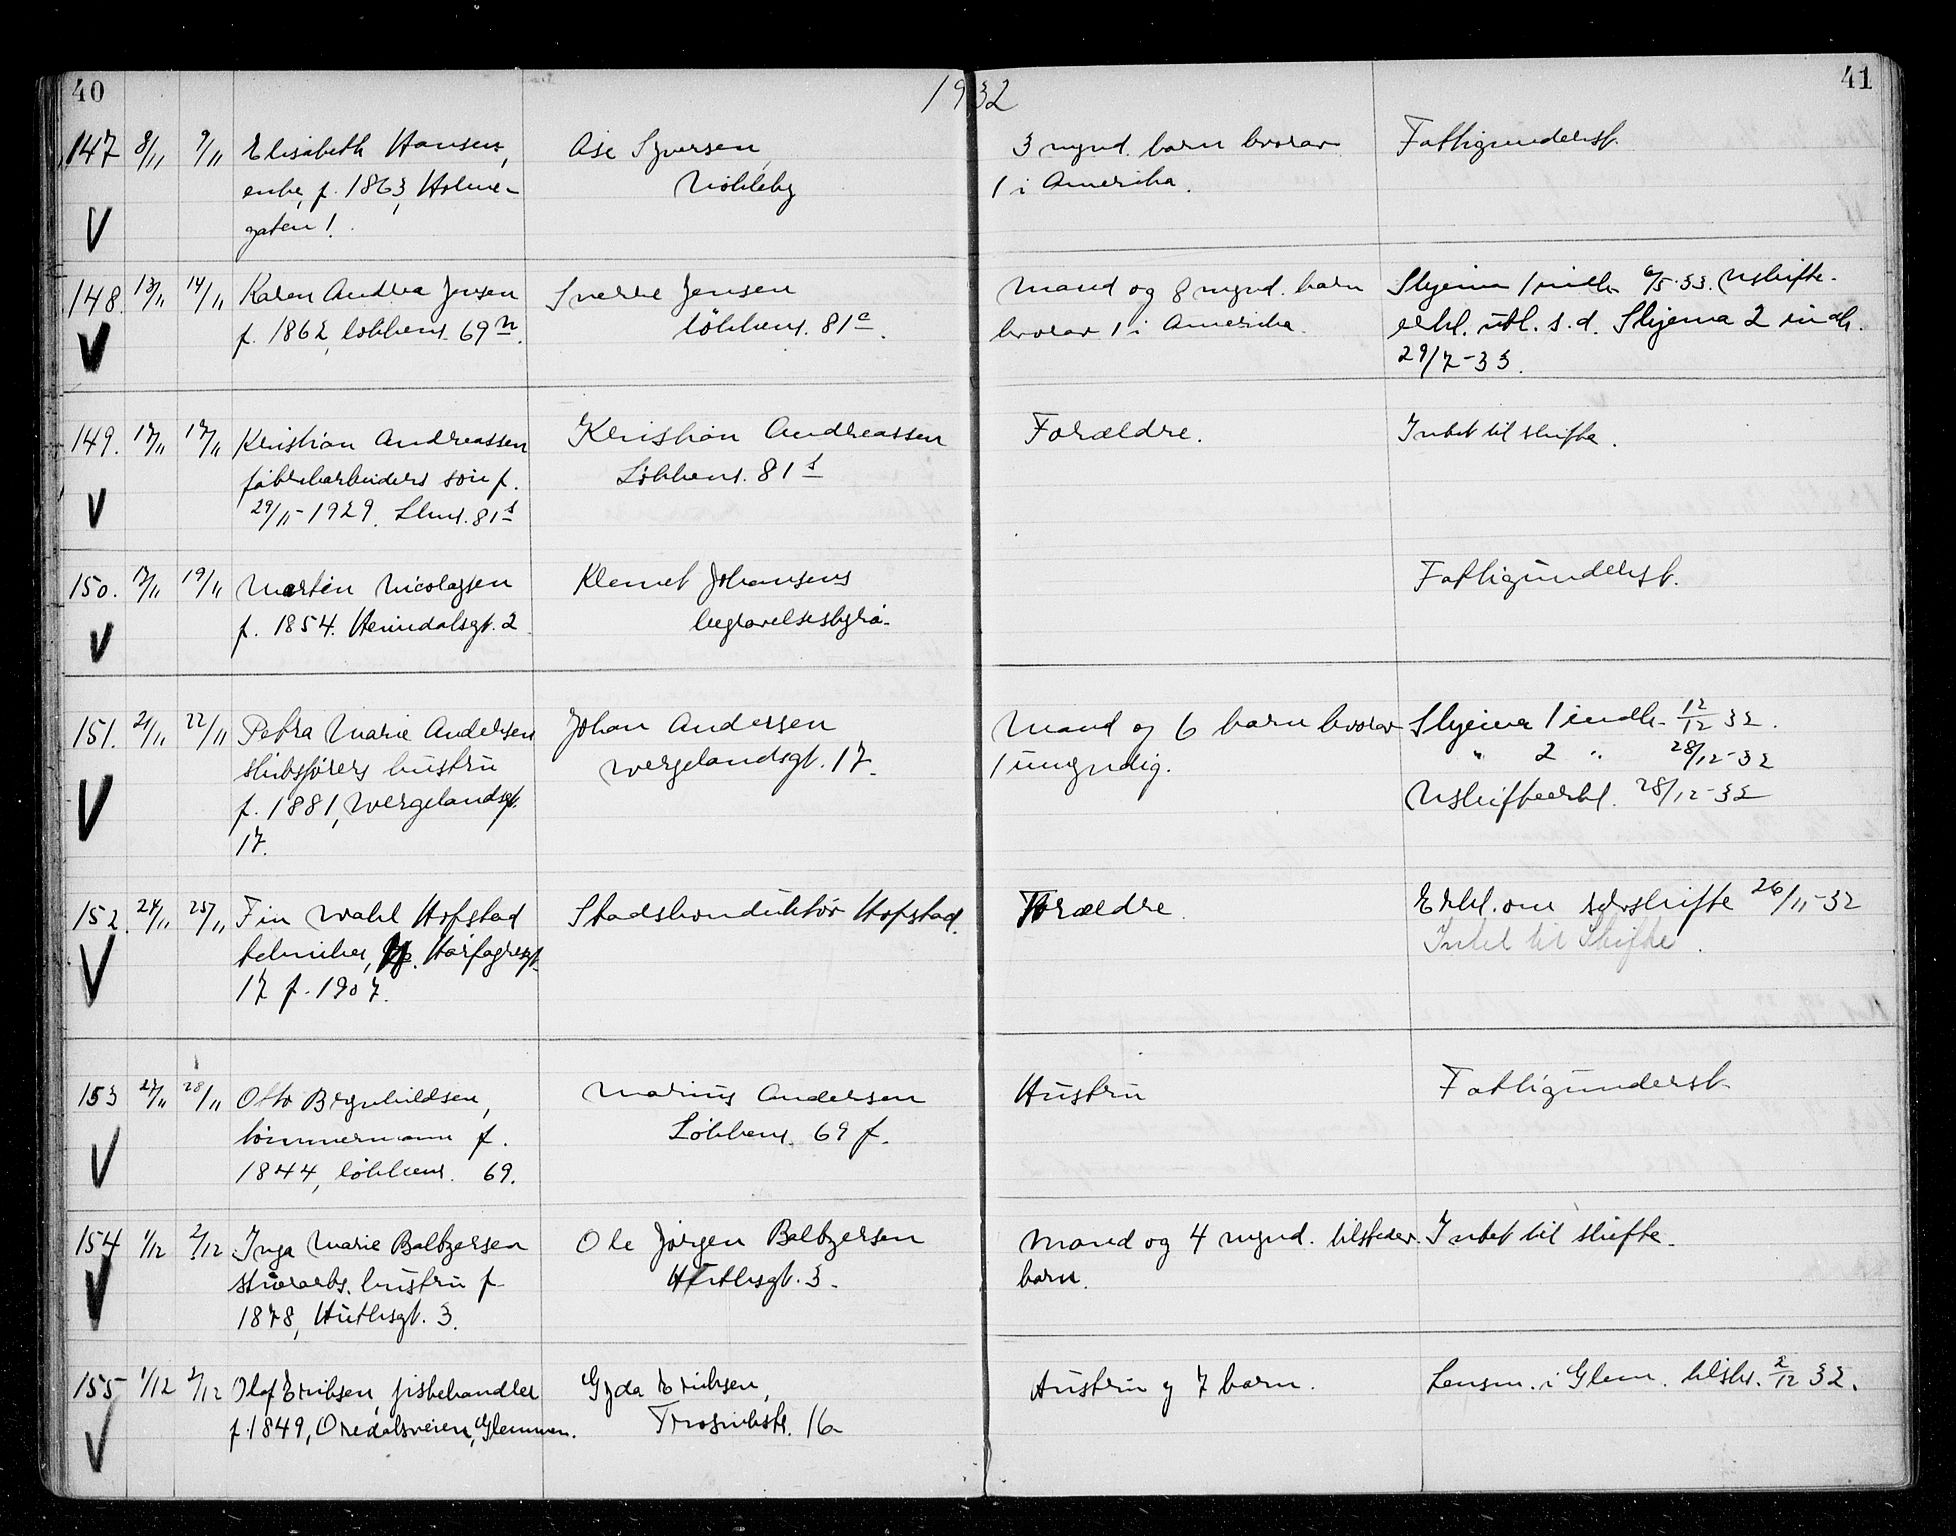 40
1932
41
147 8/11 9/11 Elisabeth Hansen, Åse Syversen, 3 mynd. barn hvorav Fattigunderst.
enke, f. 1863, Holme- Nökleby 1 i Amerika.
gaten 1.
148. 13/11 14/11 Karen Andrea Jensen Sverre Jensen Mand og 8 mynd. barn Skjema 1 indk. 6/5-33. Uskifte-
f. 1862, løkkens. 69n. løkkens. 81c. hvorav 1 i Amerika. erkl. utl. s.d. Skjema 2 indk.
29/7-33.
149. 17/11 17/11 Kristian Andreassen Kristian Andreassen Forældre. Intet til skifte.
fabrikarbeiders søn f. Løkkens. 81s
29/11-1929. Lkns. 81s
150. 17/11 19/11 Martin Nicolaysen Klemet Johansens Fattigunderst.
f. 1854. Heimdalsgt. 2 begravelsesbyrå.
151. 21/11 22/11 Petra Marie Andersen Johan Andersen Mand og 6 barn hvorav Skjema 1 indk. 12/12 32.
skibsførers hustru Wergelandsgt. 17. 1 umyndig. " 2 " 28/12-32
f. 1881, Wergelandsgt. Uskifteerkl. 28/12-32
17.
152. 24/11 25/11 Fin Wahl Hofstad Stadskonduktør Hofstad. Forældre. Erkl. om selvskifte 26/11-32
tekniker, Hårfagresgt. Intet til Skifte.
17 f. 1907.
153 27/11 28/11 Otto Brynhildsen, Marius Andersen Hustru Fattigunderst.
tømmermann f. Løkkens. 69 f.
1844, løkkens. 69.
154 1/12 2/12 Inga Marie Baltzersen Ole Jørgen Baltzersen Mand og 4 mynd. tilstedev. Intet til skifte.
stuearb. hustru f. Huthsgt. 3. barn.
1878, Huthsgt. 3.
155 1/12 2/12 Olaf Eriksen, fiskehandler Gyda Eriksen, Hustru og 7 barn. Lensm. i Glem. tilskr. 2/12 32.
f. 1849, Oredalsveien, Glemmen. Trosvikstr. 16